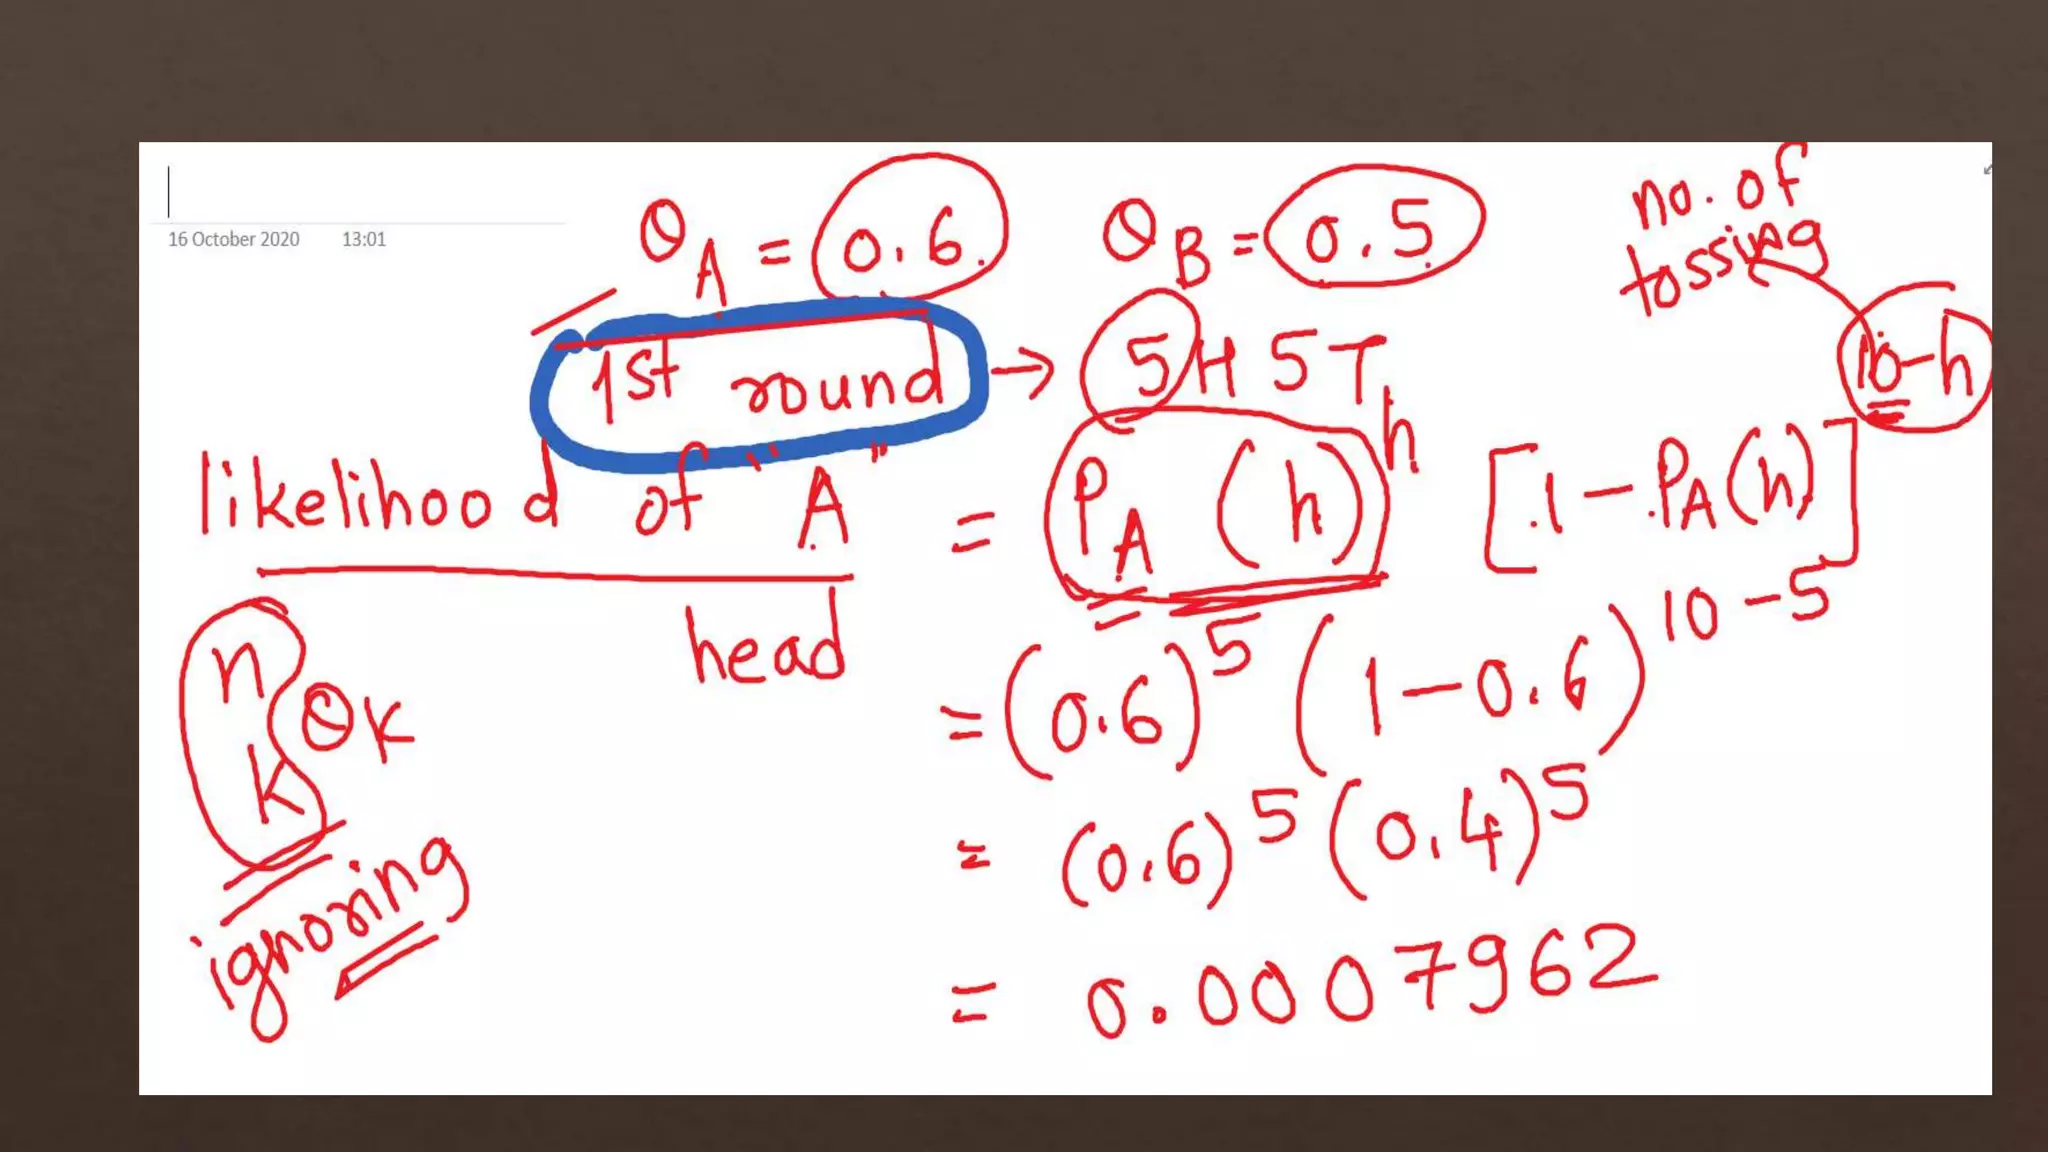 16 October 2020 13:01
θA = 0.6 θB = 0.5
no. of
tossing
1st round → 5H 5T
likelihood of "A" = PA (h)^h [1 - PA(h)]^10-h
head
= (0.6)^5 (1-0.6)^10-5
n
k
θk
= (0.6)^5 (0.4)^5
ignoring
= 0.0007962